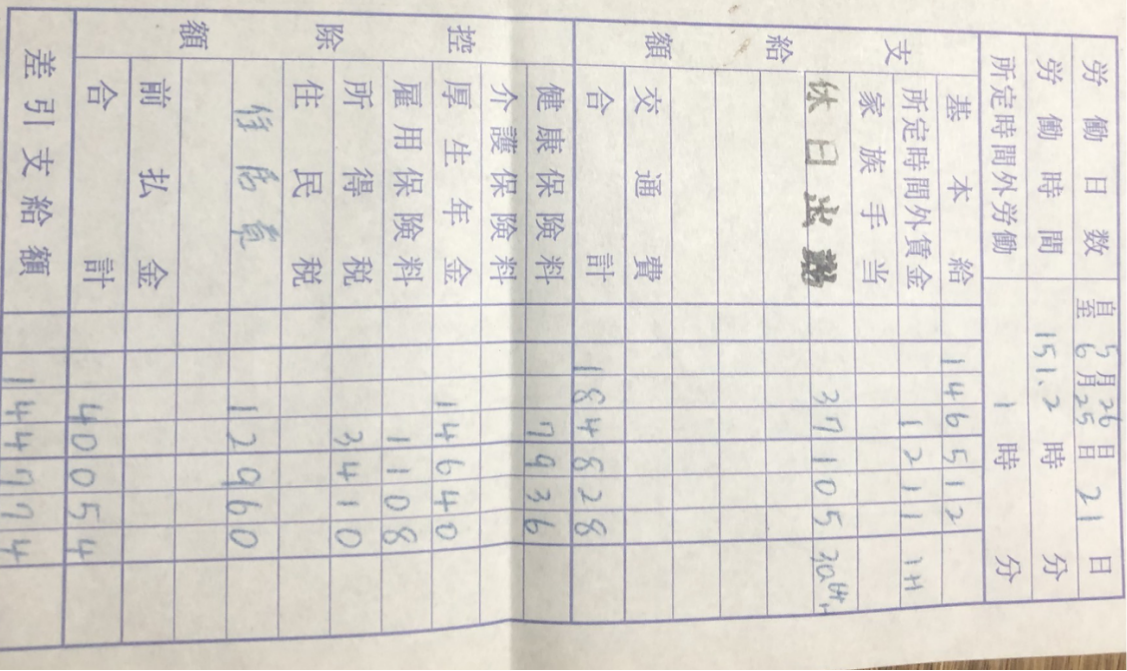 労働日数 自5月26日 至6月25日 21日
労働時間 151.2時 分
所定時間外労働 1時 分
支給額
基本給 146512
所定時間外賃金 1211 1H
家族手当
休日出勤 37105
交通費
合計 184828
控除額
健康保険料 7936
介護保険料
厚生年金 14640
雇用保険料 1108
所得税 3410
住民税
住居費 12960
前払金
合計 40054
差引支給額 144774